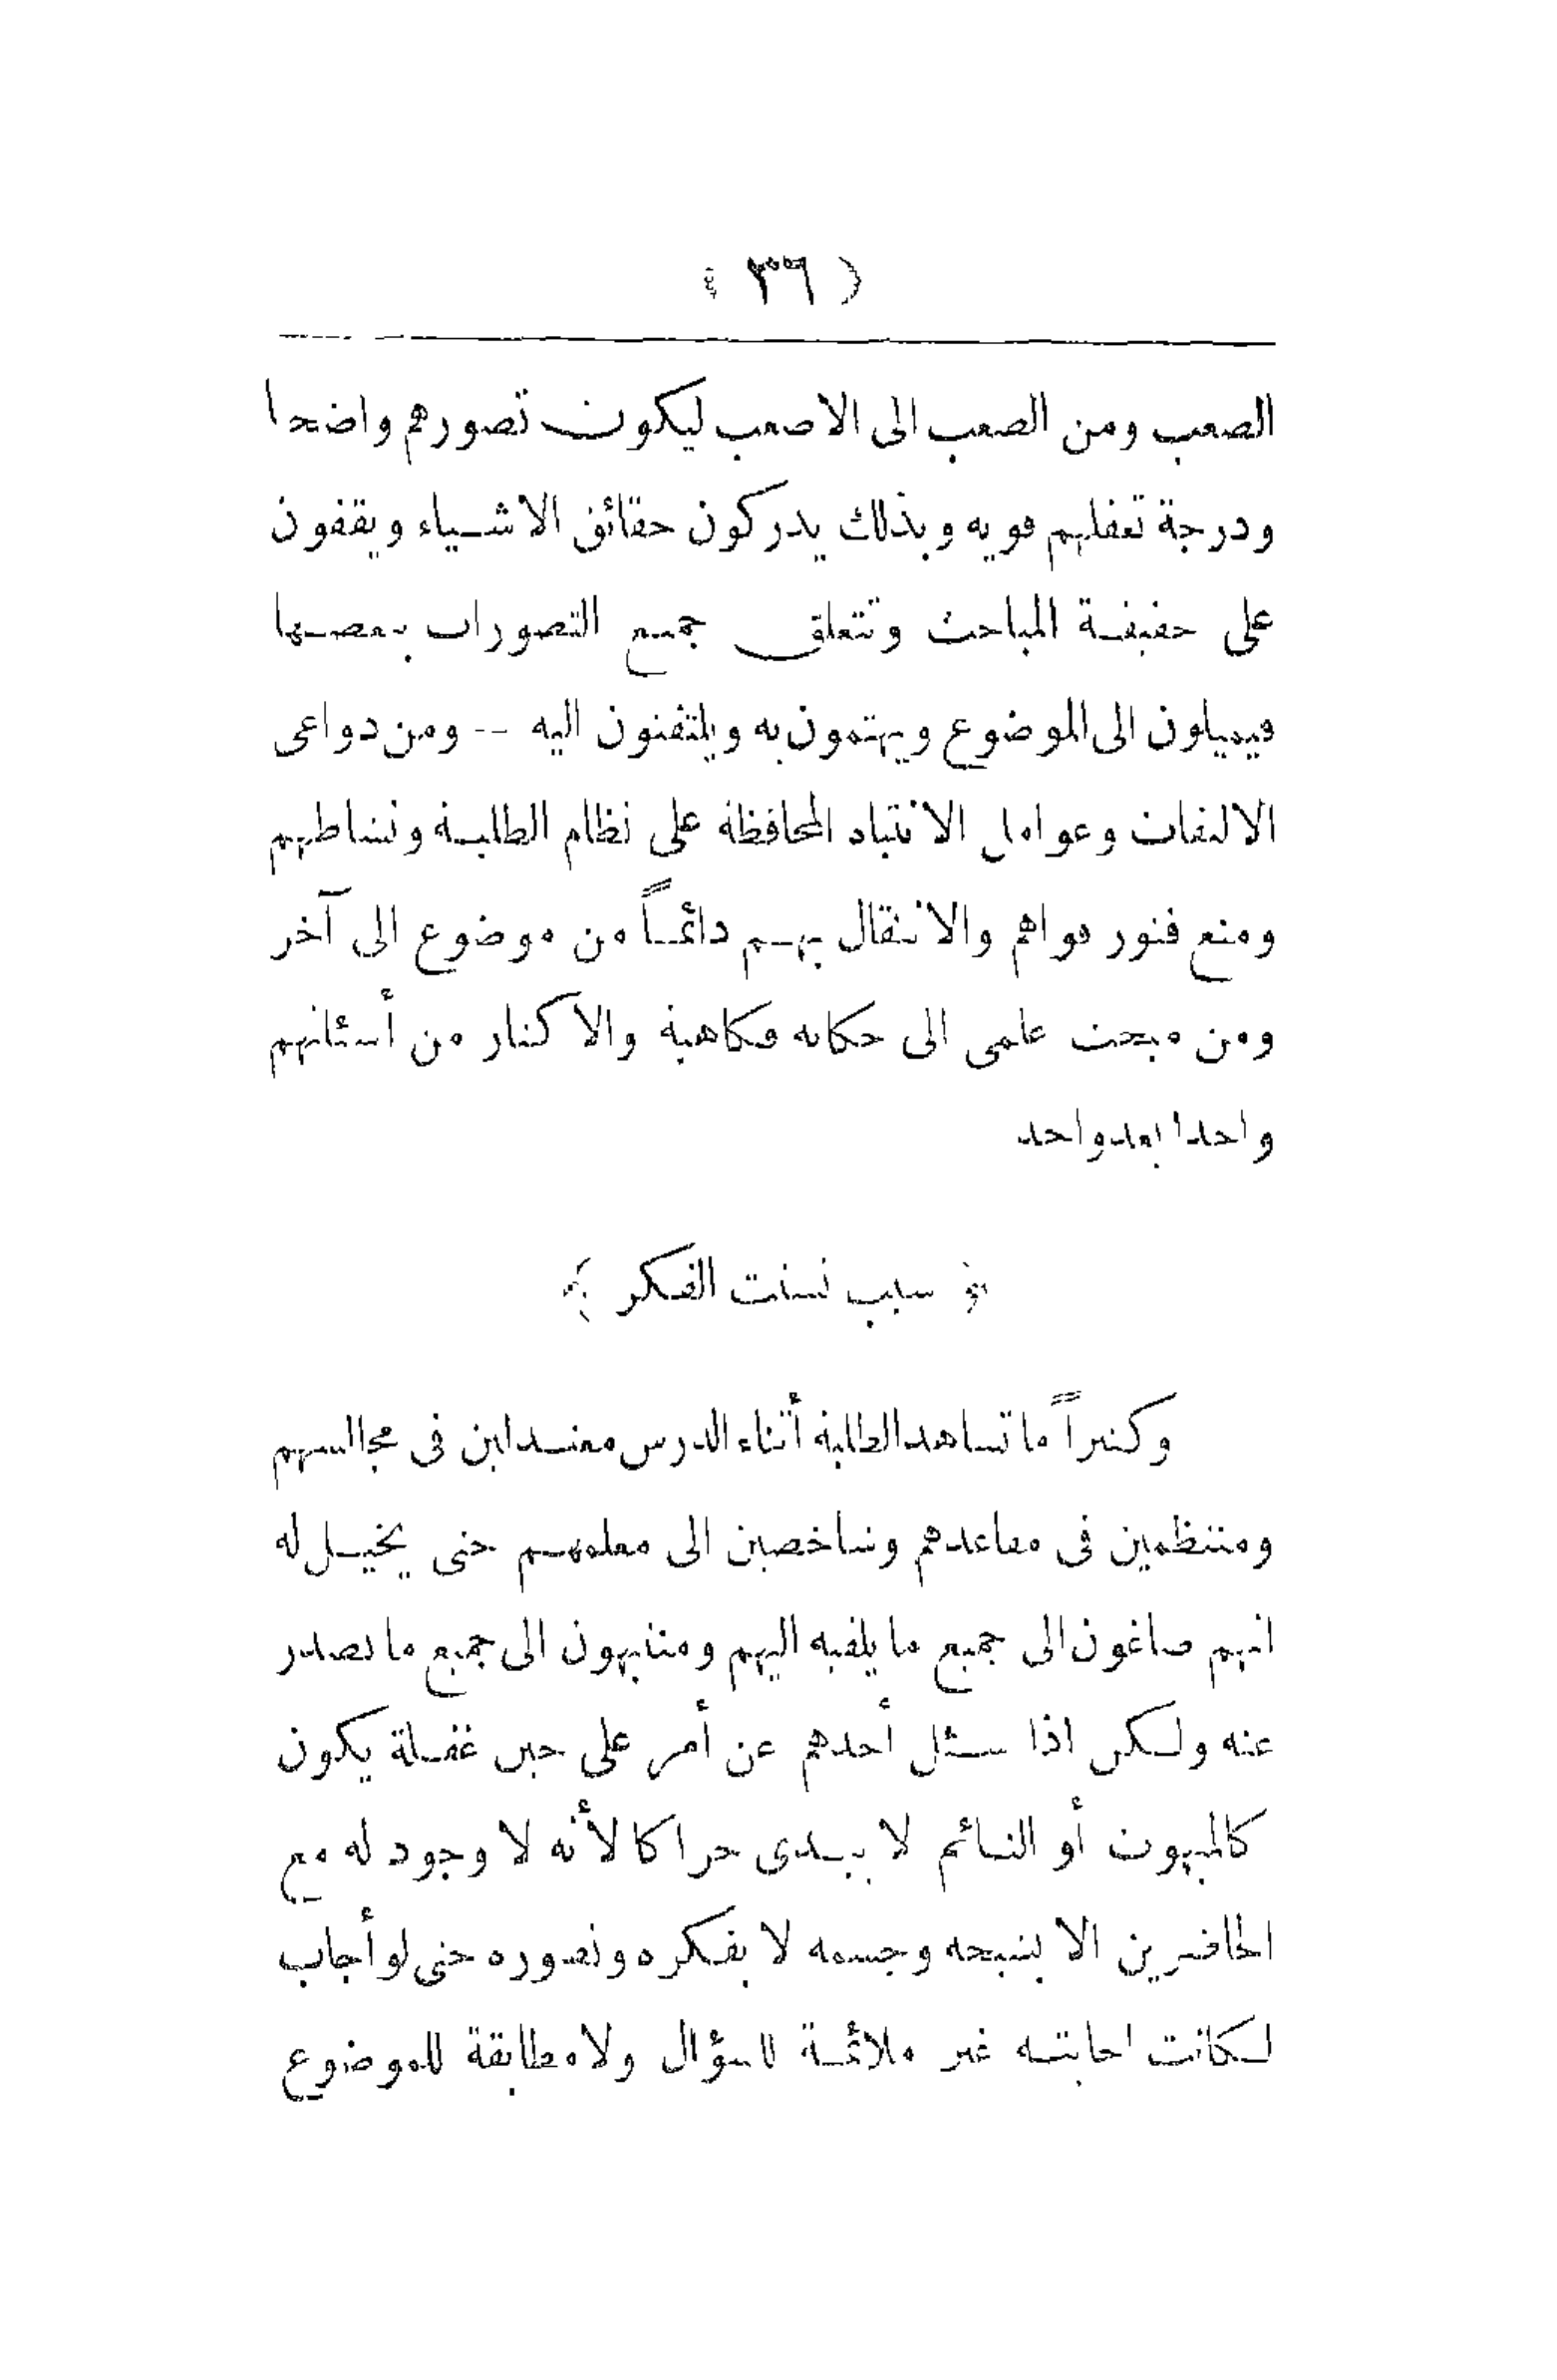 ( ٣٦ )
الصعب ومن الصعب الى الاصعب ليكون تصورهم واضحا
ودرجة تعقلهم قويه وبذلك يدركون حقائق الاشياء ويقفون
على حقيقة المباحث وتتعلق جميع التصورات ببعضها
فيميلون الى الموضوع ويهتمون به ويلتفتون اليه -- ومن دواعى
الالتفات وعوامل الانتباه المحافظة على نظام الطلبة ونشاطهم
ومنع فتور قواهم والانتقال بهم دائماً من موضوع الى آخر
ومن مبحث علمى الى حكايه فكاهية والاكثار من أسئلتهم
واحدا بعد واحد
﴿ سبب تشتت الفكر ﴾
وكثيراً ما تشاهد الطلبة أثناء الدرس معتدلين فى مجالسهم
ومنتظمين فى مقاعدهم وشاخصين الى معلمهم حتى يخيل له
انهم صاغون الى جميع ما يلقيه اليهم ومنتبهون الى جميع ما يصدر
عنه ولكن اذا سئل أحدهم عن أمر على حين غفلة يكون
كالمبهوت أو النائم لا يبدى حراكا لأنه لا وجود له مع
الحاضرين الا بشبحه وجسمه لا بفكره وتصوره حتى لو أجاب
لكانت اجابته غير ملائمة للسؤال ولا مطابقة للموضوع